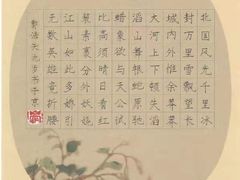 北国风光千里冰
封万里雪飘望长
城内外惟余莽莽
大河上下顿失滔
滔山舞银蛇原驰
蜡象欲与天公试
比高须晴日看红
装素裹分外妖娆
江山如此多娇引
无数英雄竞折腰
书于京